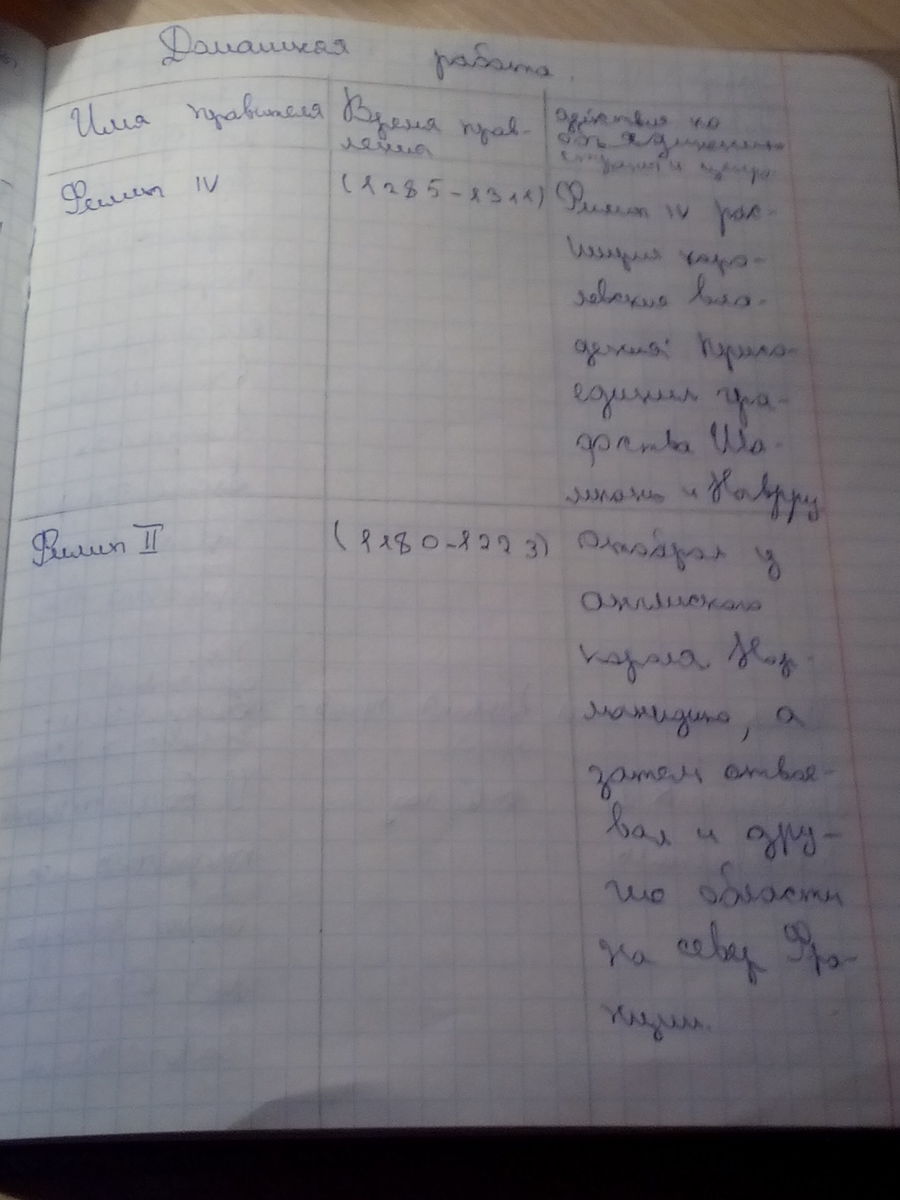 Домашняя работа.
Имя правителя
Время прав-
ления
действия по
объединению
страны и центра
Филип IV
(1285-1314)
Филип IV рас-
ширил коро-
левские вла-
дения: присо-
единил гра-
фства Ша-
мпань и Наврру
Филип II
(1180-1223)
Отобрал у
английского
короля Нор-
мандию, а
затем отвое-
вал и дру-
гию области
на север Фра-
нции.